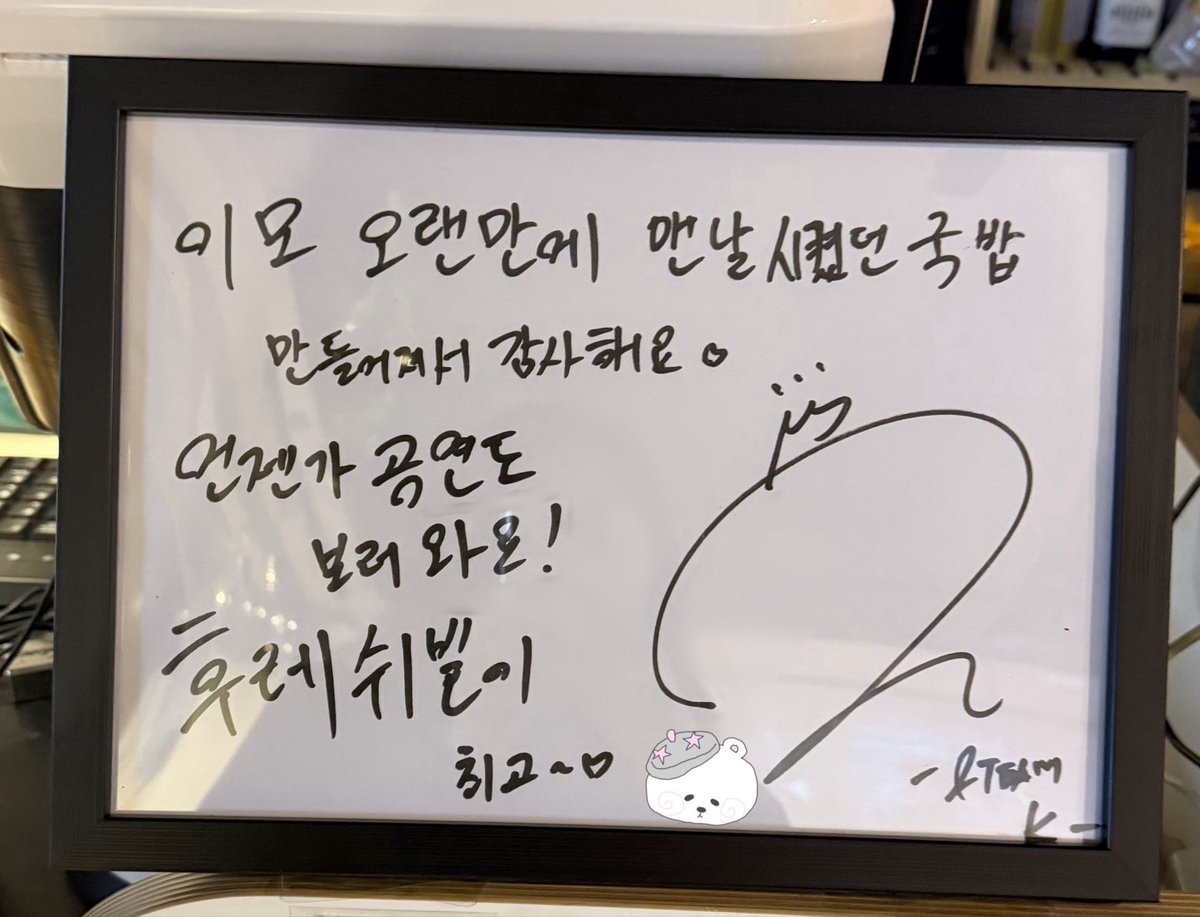 이모 오랜만에 맨날 시켰던 국밥
만들어져서 감사해요
언젠가 공연도
보러 와요!
후레쉬빌이
최고~
- &TEAM
K -